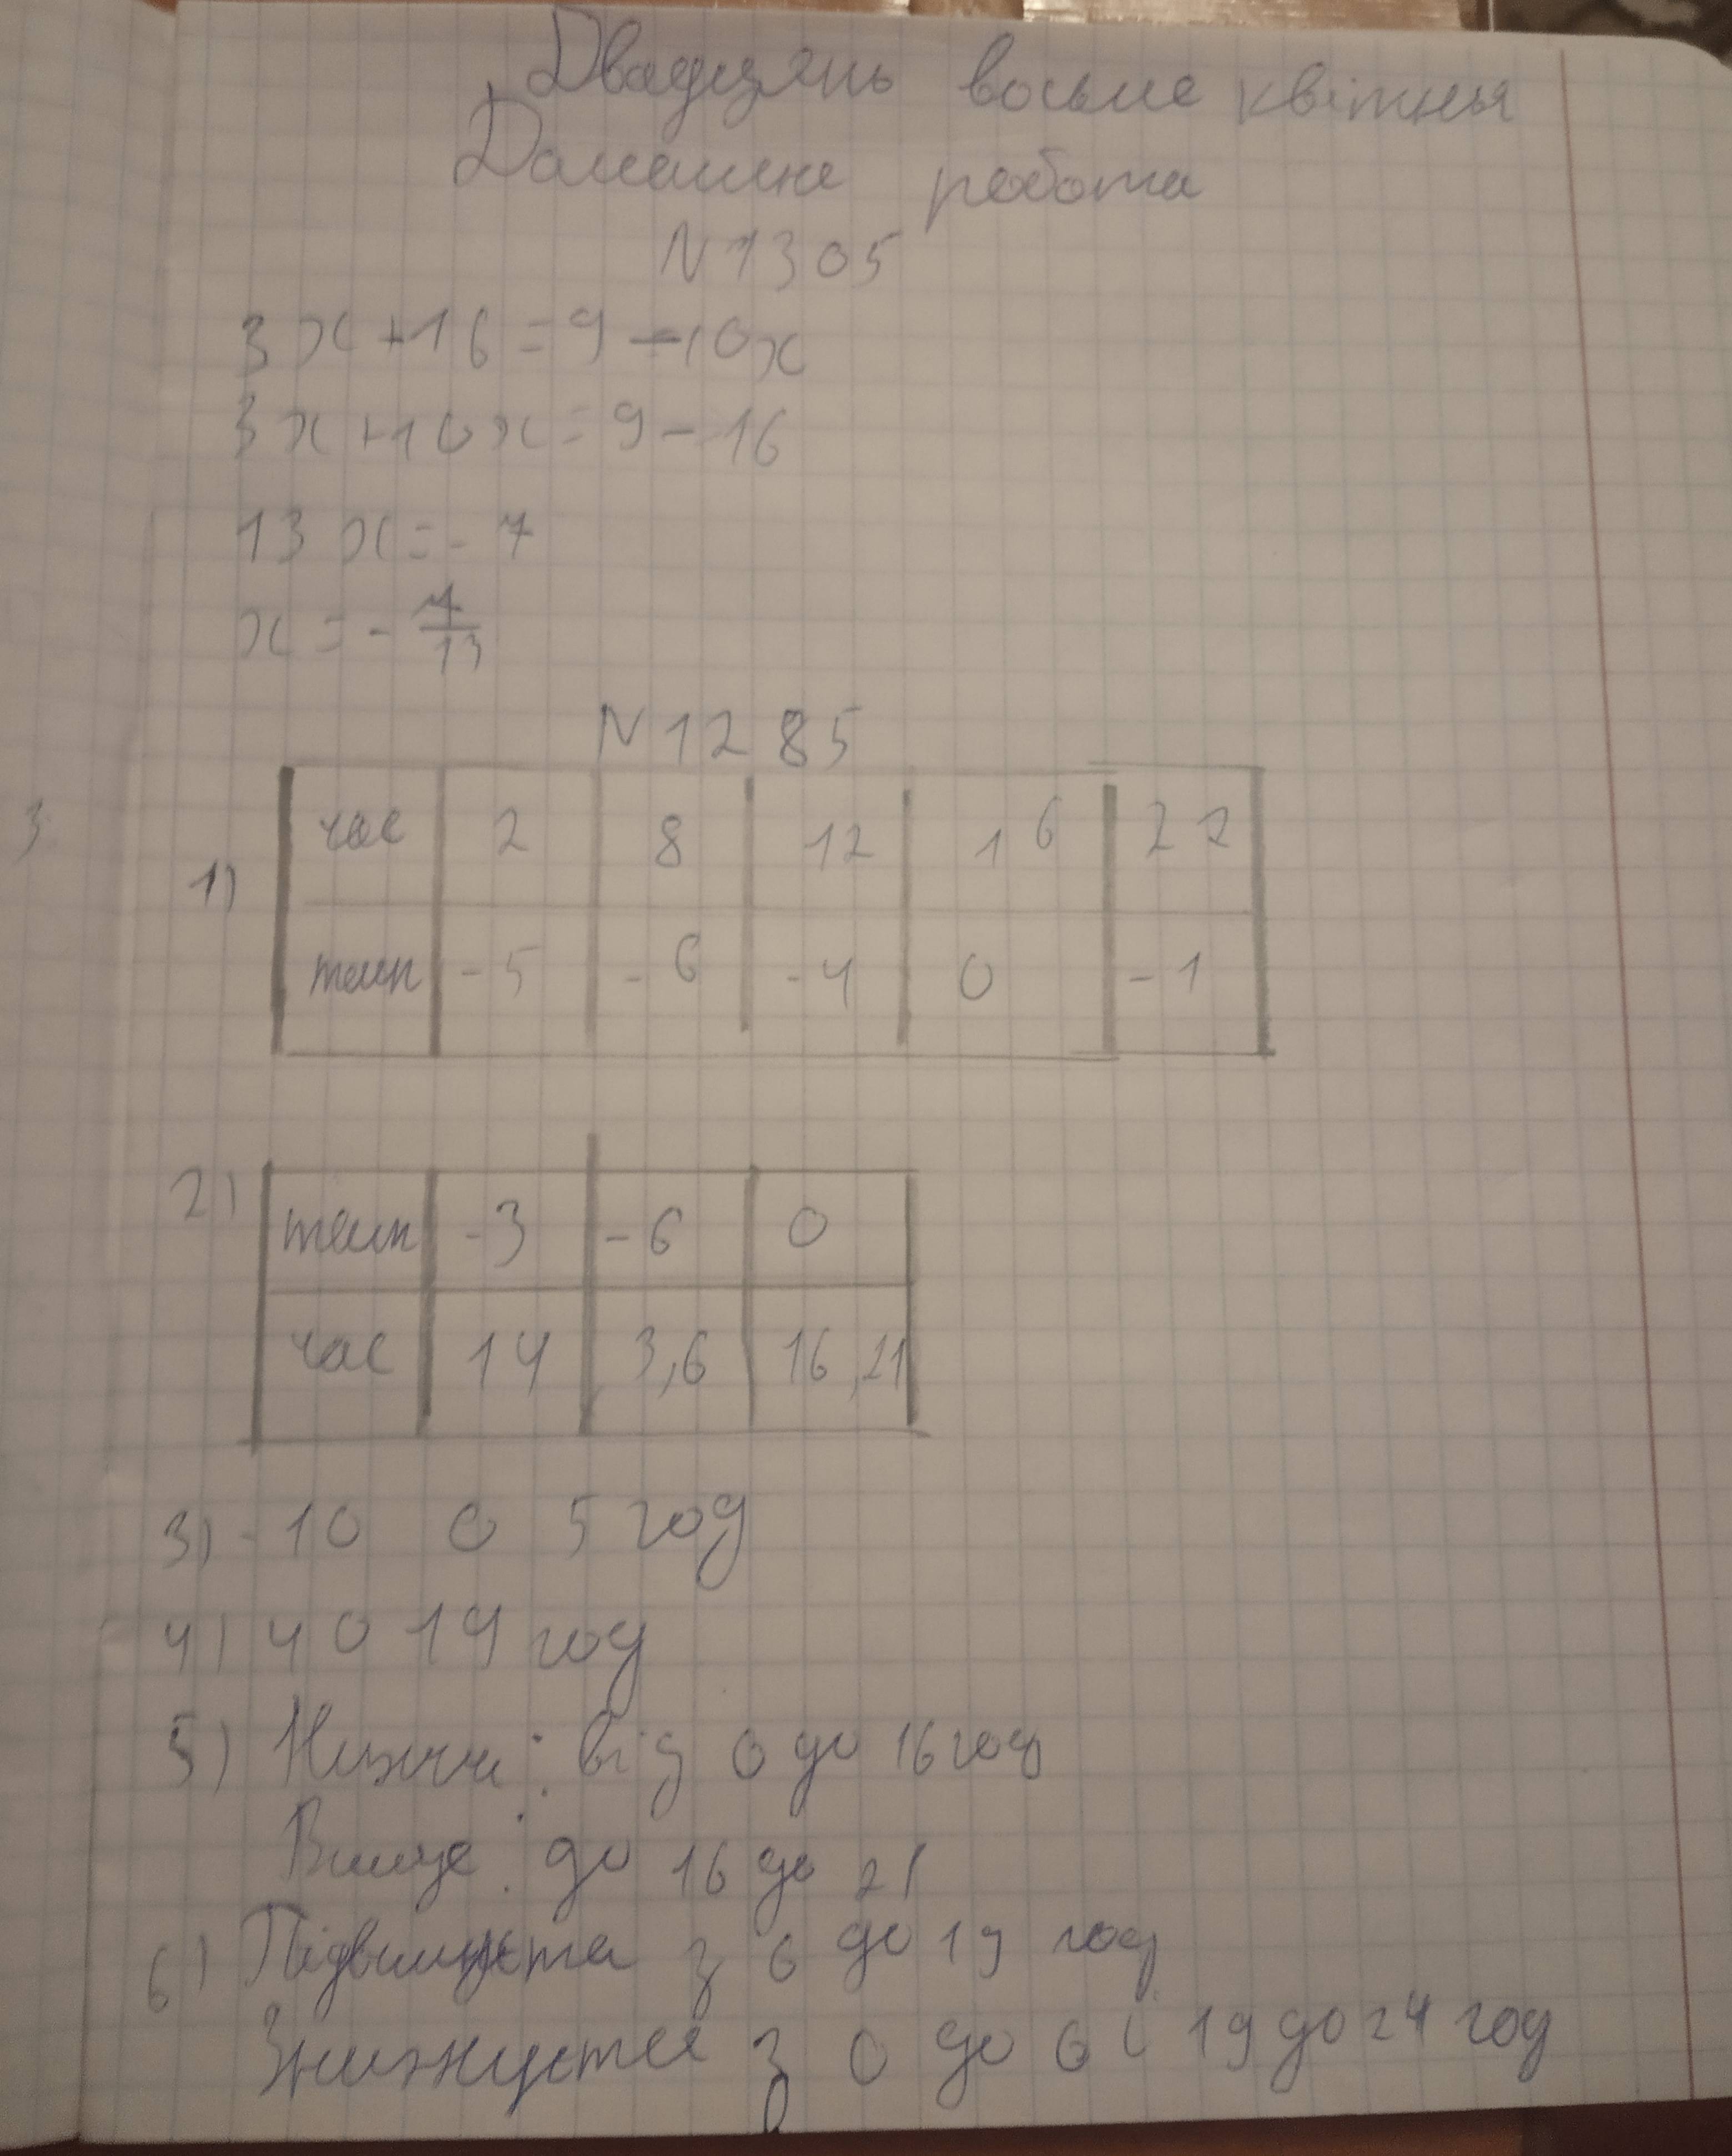 Двадцять восьме квітня
Домашнє робота
N 1305
3x+16=9-10x
3x+10x=9-16
13x=-7
x=-7/13
N 1285
3
1)
час 2 8 12 16 22
темп -5 -6 -4 0 -1
2)
темп -3 -6 0
час 14 3,6 16,21
3) -10 о 5 год
4) 4 о 19 год
5) Нижчи: від 0 до 16 год
Вище: до 16 до 21
6) Підвищуєтся з 6 до 19 год
Знижуєтся з 0 до 6 і 19 до 24 год